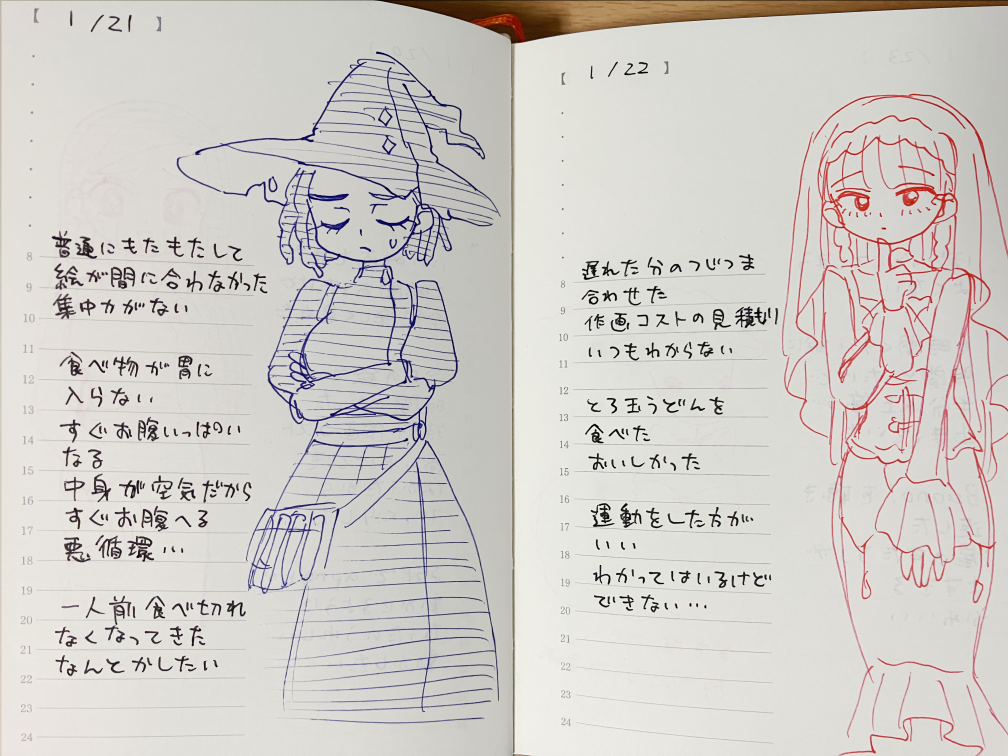 【 1/21 】
普通にもたもたして
絵が間に合わなかった
集中力がない
食べ物が胃に
入らない
すぐお腹いっぱい
なる
中身が空気だから
すぐお腹へる
悪循環…
一人前食べ切れ
なくなってきた
なんとかしたい
8
9
10
11
12
13
14
15
16
17
18
19
20
21
22
23
24
【 1/22 】
遅れた分のつじつま
合わせた
作画コストの見積もり
いつもわからない
とろ玉うどんを
食べた
おいしかった
運動をした方が
いい
わかってはいるけど
できない…
8
9
10
11
12
13
14
15
16
17
18
19
20
21
22
23
24